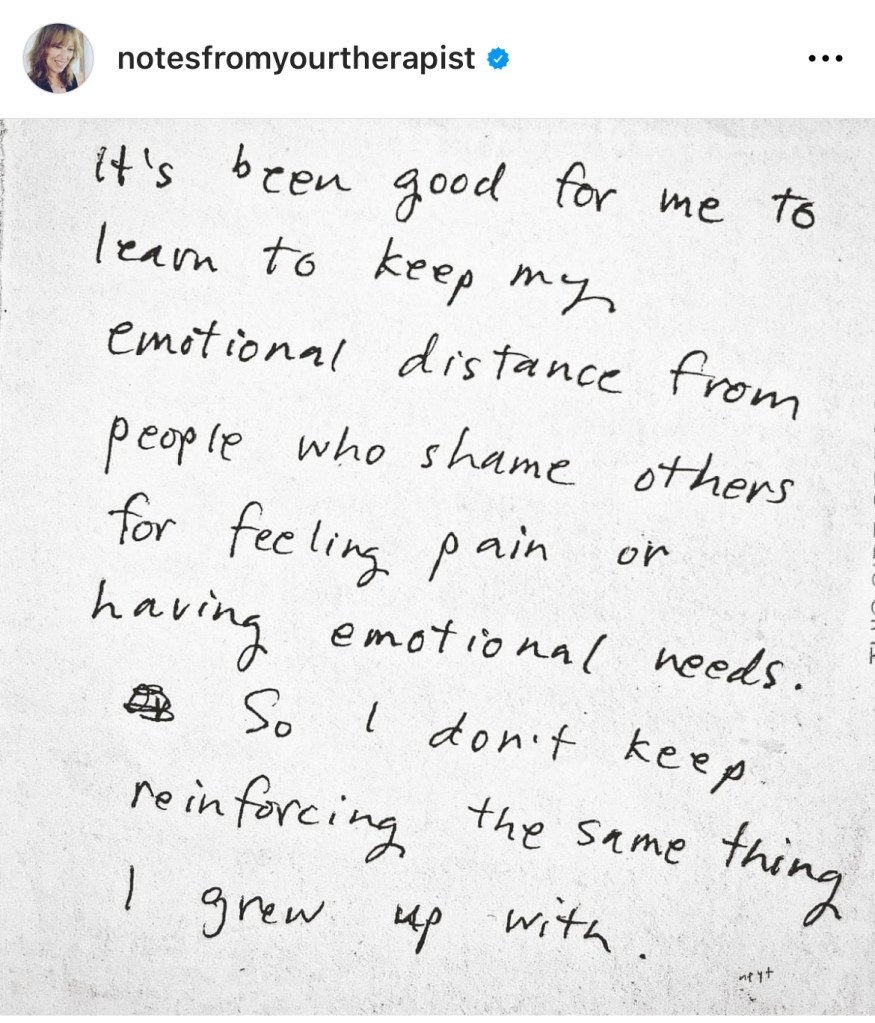 notesfromyourtherapist
It's been good for me to
learn to keep my
emotional distance from
people who shame others
for feeling pain or
having emotional needs.
So I don't keep
reinforcing the same thing
I grew up with.
nfyt